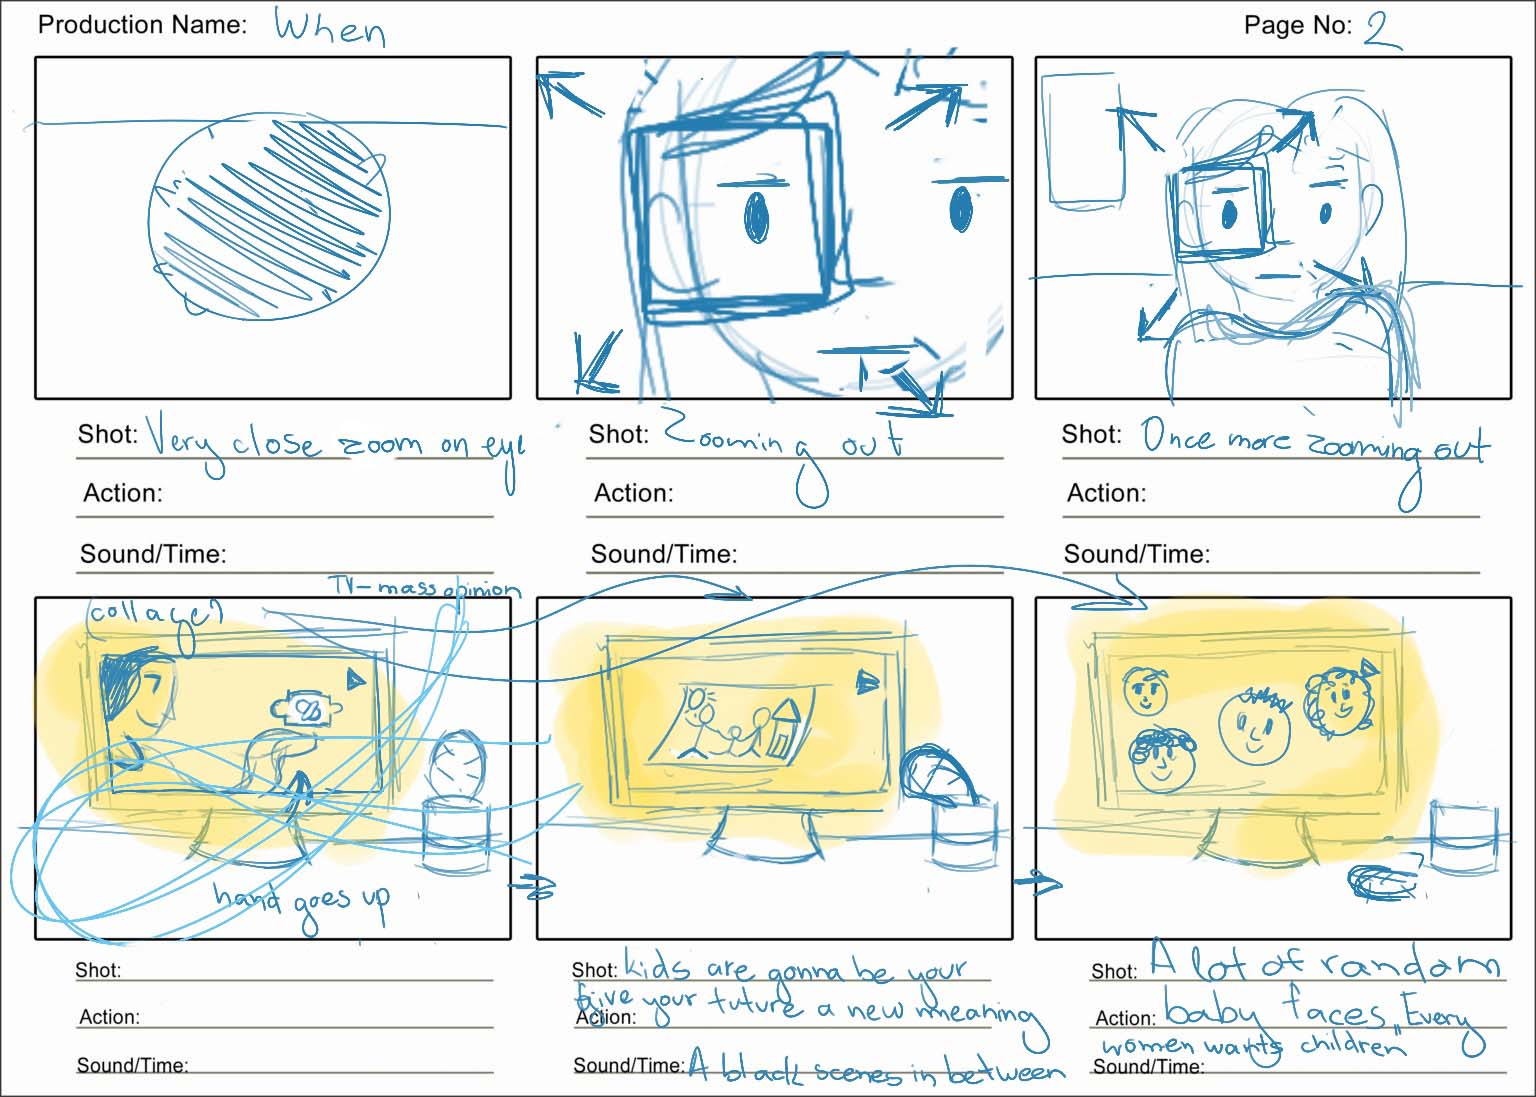 Production Name: When
Page No: 2
Shot: Very close zoom on eye
Action:
Sound/Time:
Shot: Zooming out
Action:
Sound/Time:
Shot: Once more zooming out
Action:
Sound/Time:
TV-mass opinion
collage?
hand goes up
Shot:
Action:
Sound/Time:
Shot: kids are gonna be your
give your future a new meaning
Action:
Sound/Time: A black scenes in between
Shot: A lot of random
Action: baby faces "Every
women wants children"
Sound/Time: